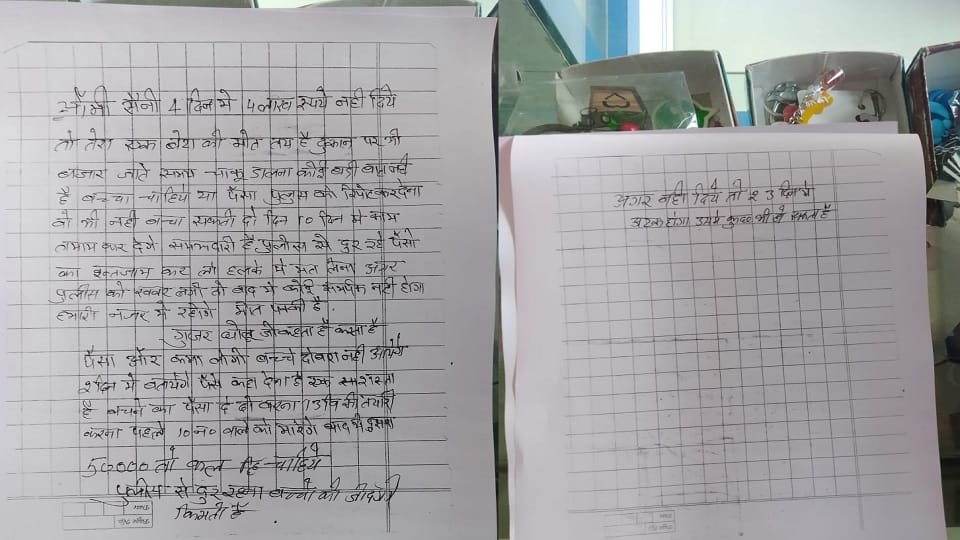 सैनी 4 दिन मे 4 लाख रुपये नही दिये
तो तेरा एक बेटा की मौत तय है दुकान पर भी
बजार जाते समय चाकू डालना कोई बडी बात नही
है बच्चा चाहिये या पैसा पुलिस को रिपोट कर देना
वो भी नही बचा सकती दो दिन 10 दिन मे काम
तमाम कर देगे समझदारी है पुलीस से दुर रहे पैसो
का इन्तजाम कर लो हलके मे मत लेना अगर
पुलीस को खबर लगी तो बाद मे कोई नही होगा
हमारी नजर मे रहोगे मौत पक्की है
गुजर जो कहता है करता है
पैसा और कमा लोगे बच्चे दोबारा नही आयेगे
दिन मे बतायेगे पैसे कहा देना है एक रास्ता
है बचने का पैसा दे दो वरना 13 वी की तैयारी
करना पहले 10 न० वाले को मारेगे बाद मे दुसरा
50000 तो कल ही चाहिये
पुलीस से दुर रहना बच्चो की जीदगी
किमती है
अगर नही दिये तो 2 3 दिन मे
अटैक होगा उसमे कुछ भी हो सकता है